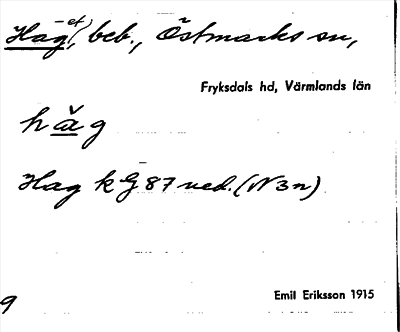 Häg(-et), beb., Östmarks sn,
Fryksdals hd, Värmlands län
häg
Hag k G 87 ved. (N3n)
Emil Eriksson 1915
9